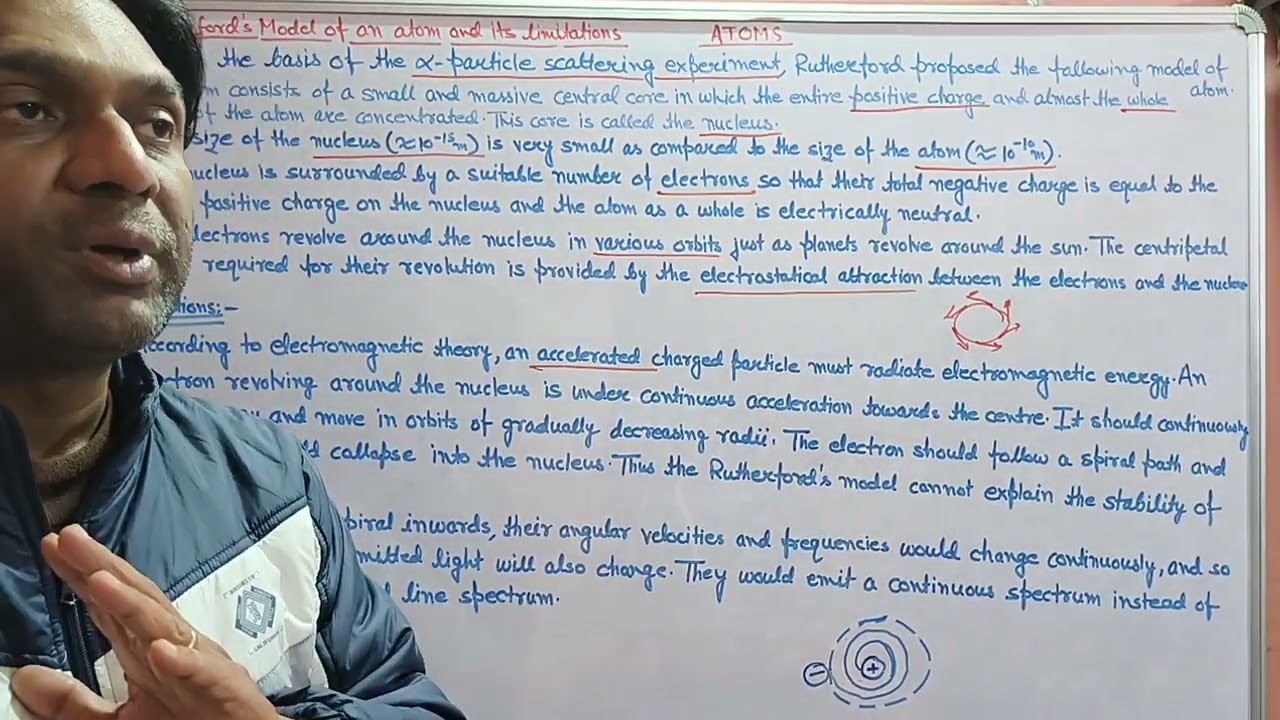 ford's Model of an atom and its limitations ATOMS
the basis of the α-particle scattering experiment, Rutherford proposed the following model of atom.
consists of a small and massive central core in which the entire positive charge and almost the whole
of the atom are concentrated. This core is called the nucleus.
size of the nucleus (≈10⁻¹⁵m) is very small as compared to the size of the atom (≈10⁻¹⁰m).
nucleus is surrounded by a suitable number of electrons so that their total negative charge is equal to the
positive charge on the nucleus and the atom as a whole is electrically neutral.
lectrons revolve around the nucleus in various orbits just as planets revolve around the sun. The centripetal
required for their revolution is provided by the electrostatical attraction between the electrons and the nucleus
tions:-
ccording to electromagnetic theory, an accelerated charged particle must radiate electromagnetic energy. An
tron revolving around the nucleus is under continuous acceleration towards the centre. It should continuously
and move in orbits of gradually decreasing radii. The electron should follow a spiral path and
collapse into the nucleus. Thus the Rutherford's model cannot explain the stability of
piral inwards, their angular velocities and frequencies would change continuously, and so
mitted light will also change. They would emit a continuous spectrum instead of
line spectrum.
− +